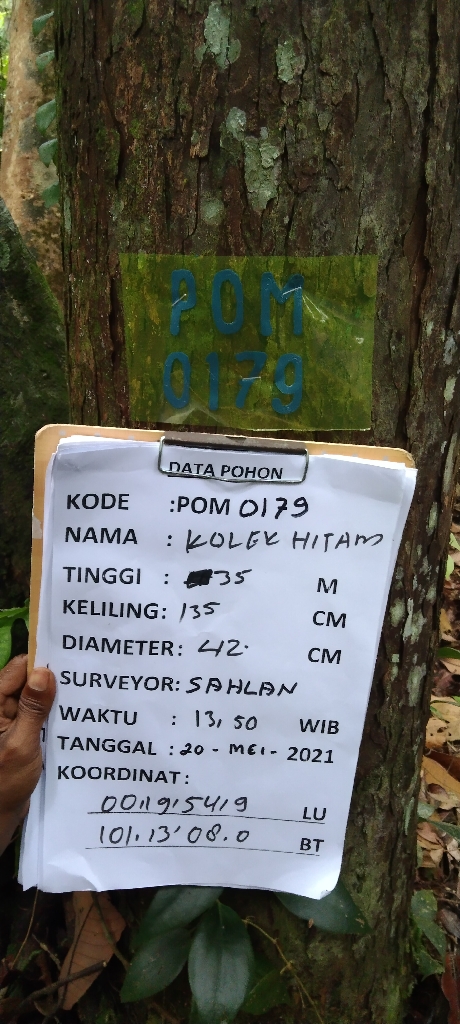 POM
0179
DATA POHON
KODE :POM 0179
NAMA : KOLEK HITAM
TINGGI : 35 M
KELILING: 135 CM
DIAMETER: 42. CM
SURVEYOR: SAHLAN
WAKTU : 13,50 WIB
TANGGAL : 20 - MEI - 2021
KOORDINAT:
00.19'54.9 LU
101.13'08.0 BT